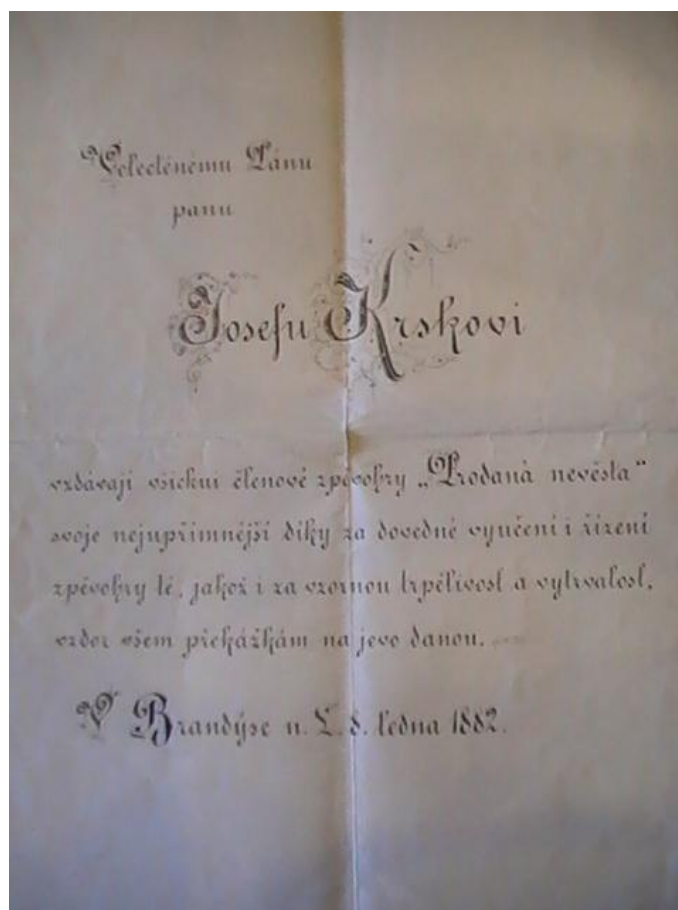 Velectěnému Pánu
panu
Josefu Krskovi
vzdávají všickni členové zpěvohry „Prodaná nevěsta“
svoje nejupřímnější díky za dovedné vyučení i řízení
zpěvohry té, jakož i za vzornou trpělivost a vytrvalost,
vzdor všem překážkám na jevo danou.
V Brandýse n. L. 8. ledna 1882.